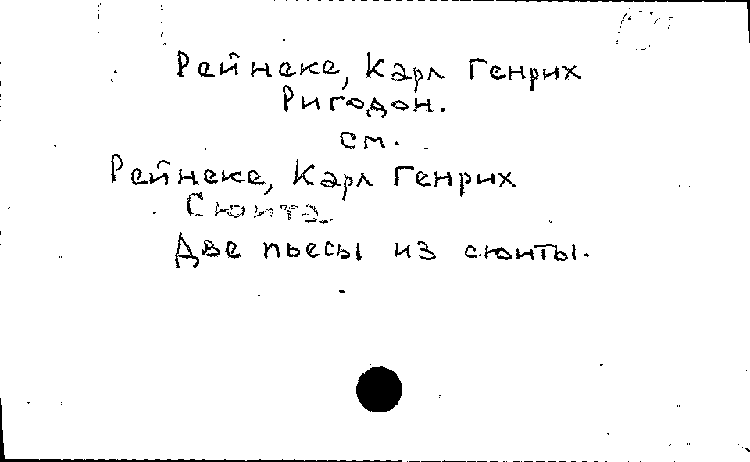 Рейнеке, Карл Генрих
Ригодон.
см.
Рейнеке, Карл Генрих
Сюита
Две пьесы из сюиты.